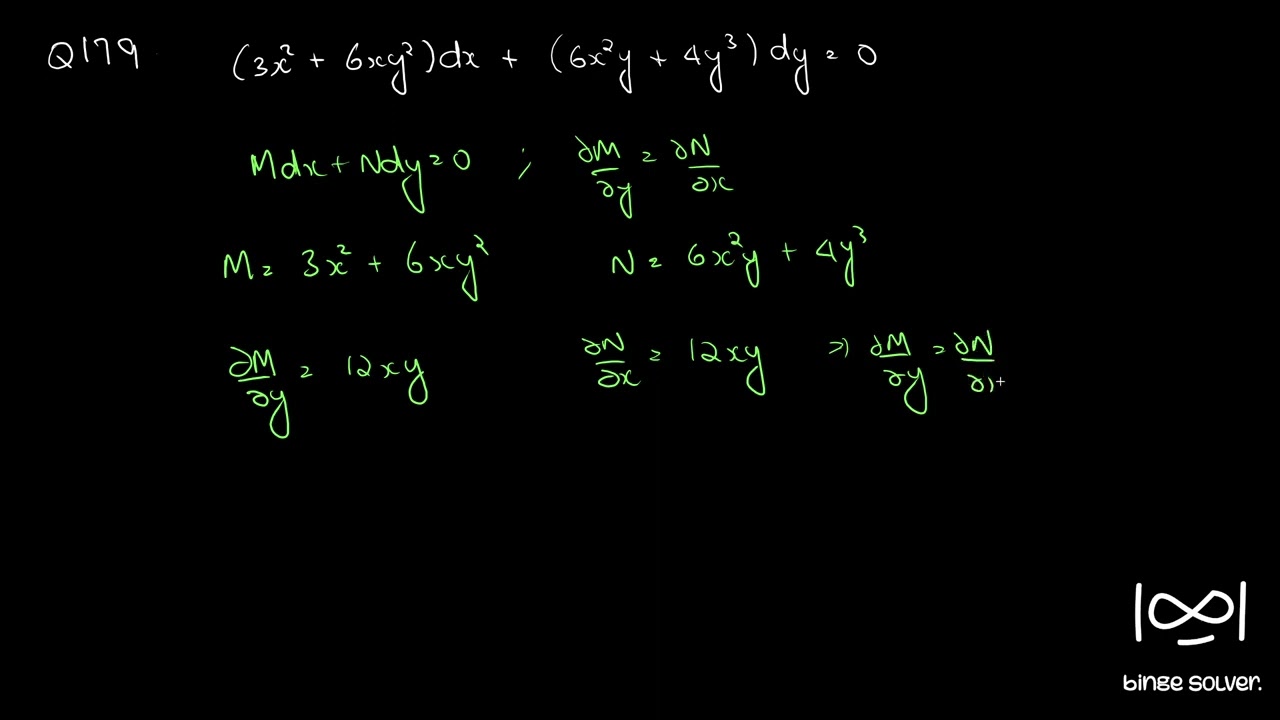 Q179 (3x² + 6xy²)dx + (6x²y + 4y³)dy = 0
Mdx + Ndy = 0 ; ∂M/∂y = ∂N/∂x
M = 3x² + 6xy² N = 6x²y + 4y³
∂M/∂y = 12xy ∂N/∂x = 12xy ⇒ ∂M/∂y = ∂N/∂x
binge solver.